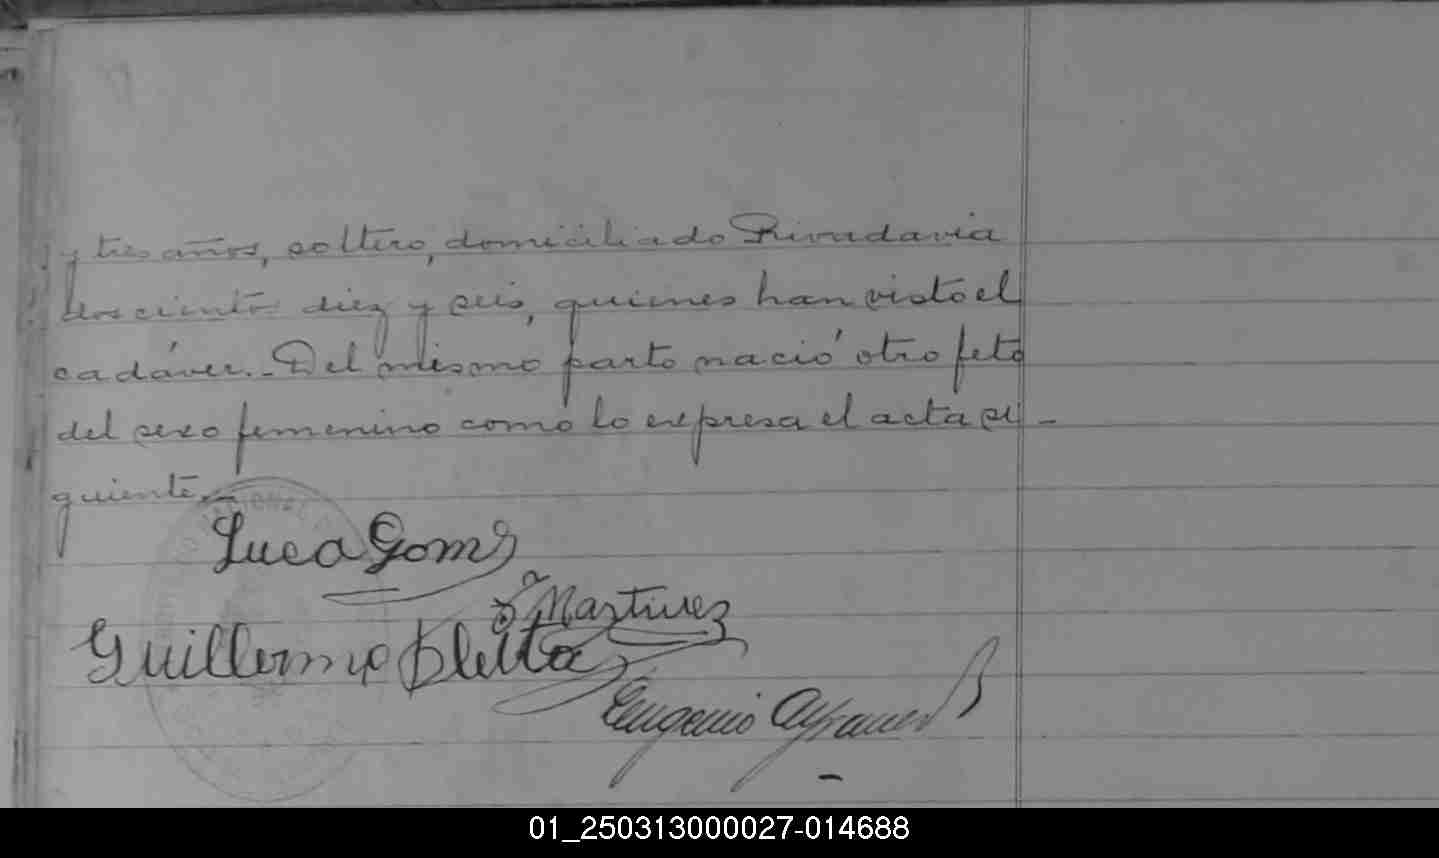 y tres años, soltero, domiciliado Rivadavia
doscientos diez y seis, quienes han visto el
cadáver.- Del mismo parto nació otro feto
del sexo femenino como lo expresa el acta si-
guiente.-
NACIONAL
Luca Gom
Martinez
Guillermo
Eugenio
01_250313000027-014688